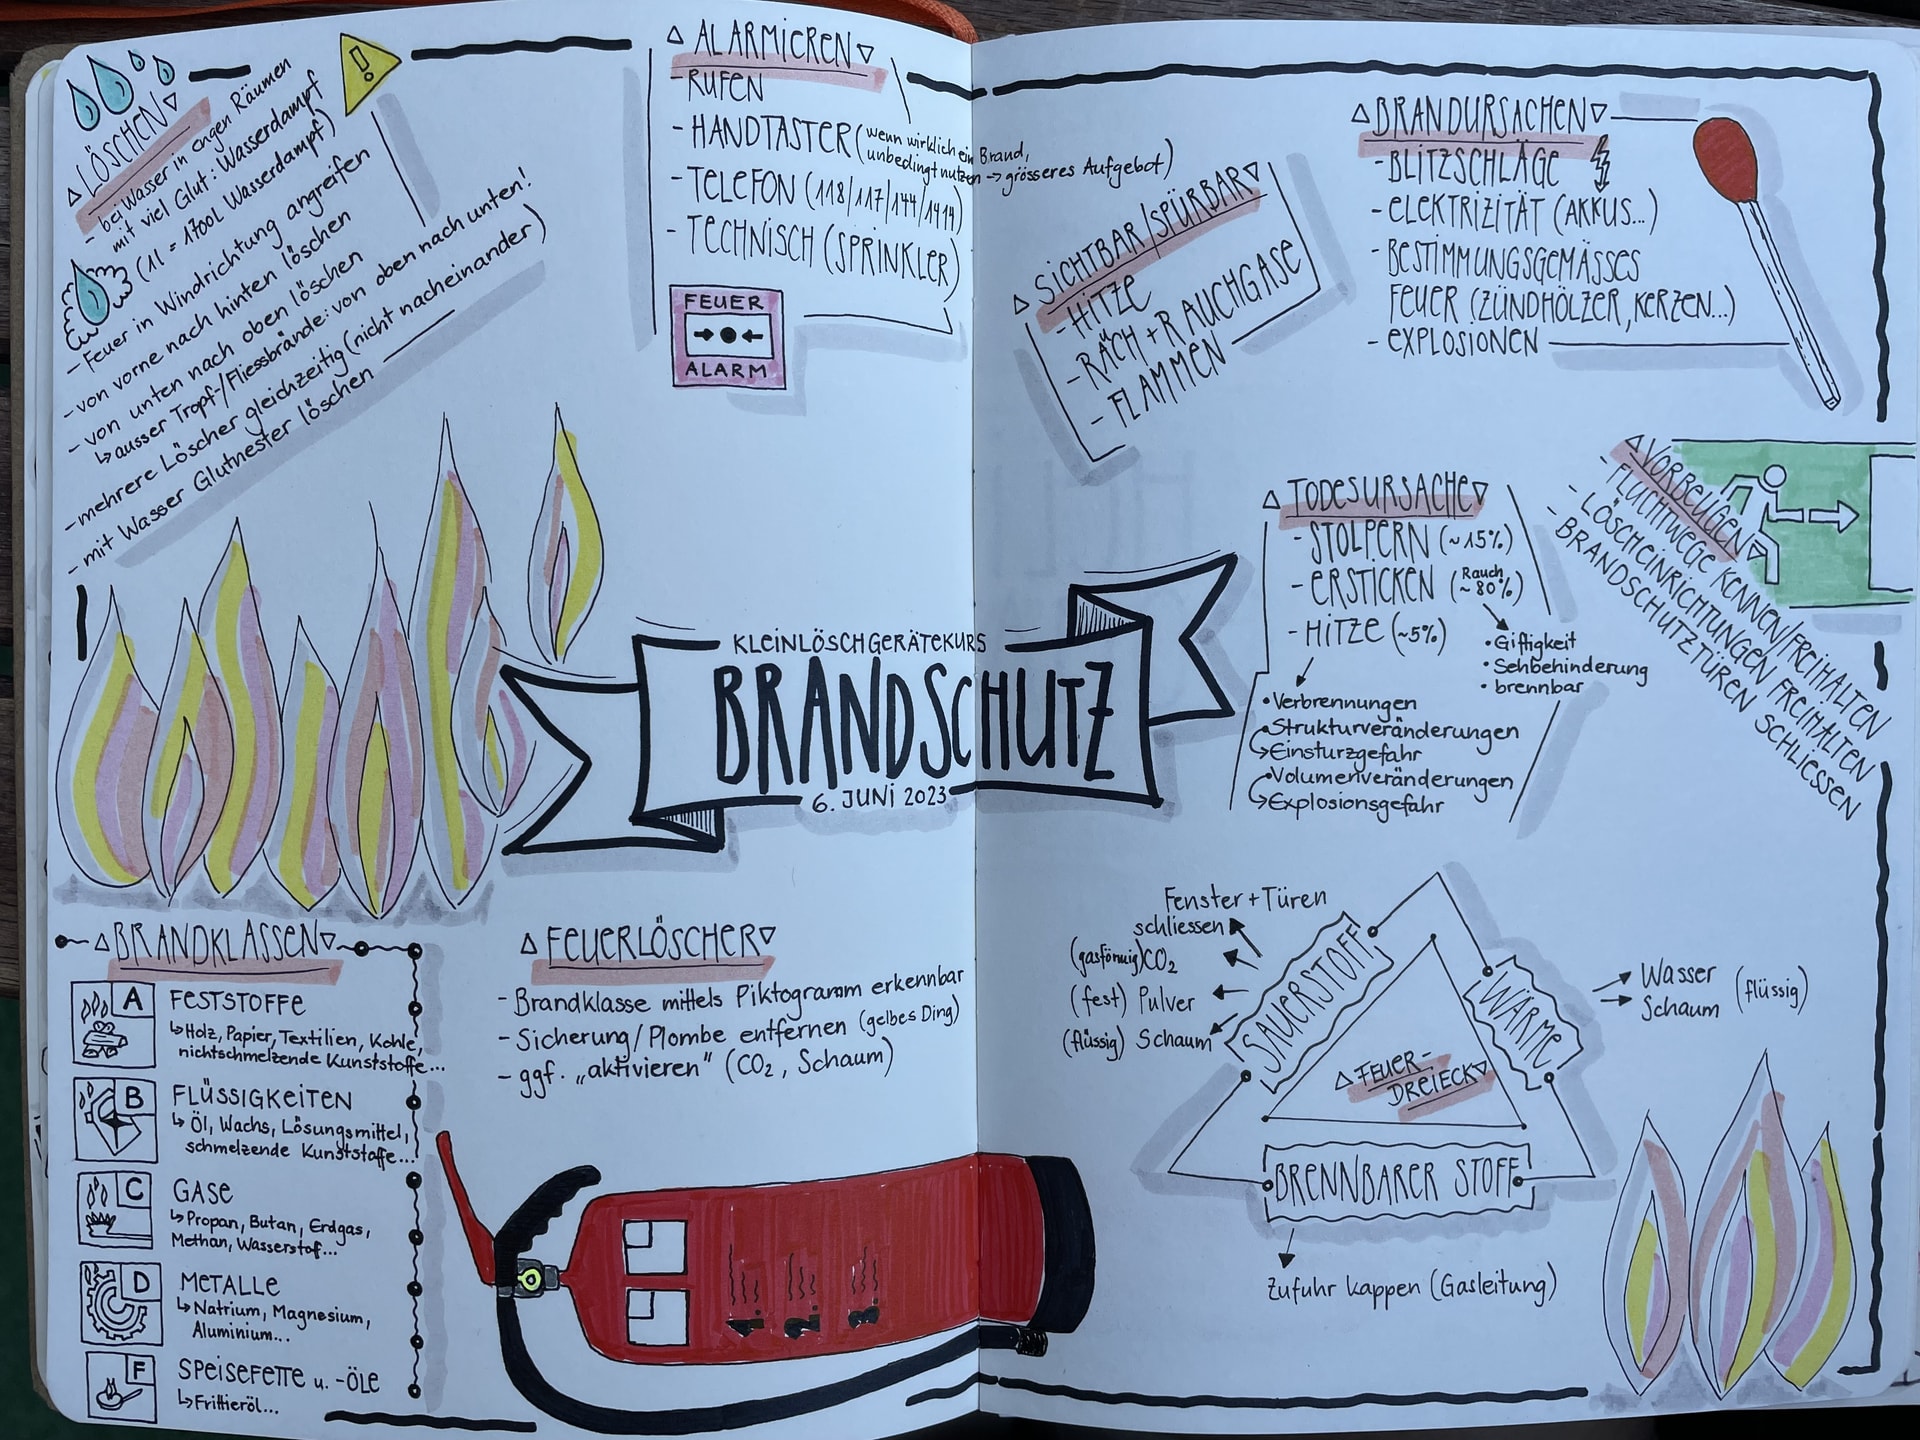 △ LÖSCHEN ▽
- bei Wasser in engen Räumen
mit viel Glut: Wasserdampf
(1l = 1700l Wasserdampf)
- Feuer in Windrichtung angreifen
- von vorne nach hinten löschen
- von unten nach oben löschen
↳ ausser Tropf-/Fliessbrände: von oben nach unten!
- mehrere Löscher gleichzeitig (nicht nacheinander)
- mit Wasser Glutnester löschen
!
△ ALARMIEREN ▽
- RUFEN
- HANDTASTER (wenn wirklich ein Brand,
unbedingt nutzen → grösseres Aufgebot)
- TELEFON (118/117/144/1414)
- TECHNISCH (SPRINKLER)
FEUER
ALARM
△ SICHTBAR/SPÜRBAR ▽
- HITZE
- RÄCH + RAUCHGASE
- FLAMMEN
△ BRANDURSACHEN ▽
- BLITZSCHLÄGE
- ELEKTRIZITÄT (AKKUS...)
- BESTIMMUNGSGEMÄSSES
FEUER (ZÜNDHÖLZER, KERZEN...)
- EXPLOSIONEN
△ VORBEUGEN ▽
- FLUCHTWEGE KENNEN/FREIHALTEN
- LÖSCHEINRICHTUNGEN FREIHALTEN
- BRANDSCHUTZTÜREN SCHLIESSEN
△ TODESURSACHE ▽
- STOLPERN (~15%)
- ERSTICKEN (Rauch ~80%)
- HITZE (~5%)
• Giftigkeit
• Sehbehinderung
• brennbar
• Verbrennungen
• Strukturveränderungen
↳ Einsturzgefahr
• Volumenveränderungen
↳ Explosionsgefahr
KLEINLÖSCHGERÄTEKURS
BRANDSCHUTZ
6. JUNI 2023
△ BRANDKLASSEN ▽
A FESTSTOFFE
↳ Holz, Papier, Textilien, Kohle,
nichtschmelzende Kunststoffe...
B FLÜSSIGKEITEN
↳ Öl, Wachs, Lösungsmittel,
schmelzende Kunststoffe...
C GASE
↳ Propan, Butan, Erdgas,
Methan, Wasserstof...
D METALLE
↳ Natrium, Magnesium,
Aluminium...
F SPEISEFETTE u. -ÖLE
↳ Frittieröl...
△ FEUERLÖSCHER ▽
- Brandklasse mittels Piktogramm erkennbar
- Sicherung/Plombe entfernen (gelbes Ding)
- ggf. „aktivieren" (CO2, Schaum)
1. 2. 3.
Fenster + Türen
schliessen
(gasförmig) CO2
(fest) Pulver
(flüssig) Schaum
SAUERSTOFF
WÄRME
Wasser
Schaum (flüssig)
△ FEUER-
DREIECK ▽
BRENNBARER STOFF
Zufuhr kappen (Gasleitung)